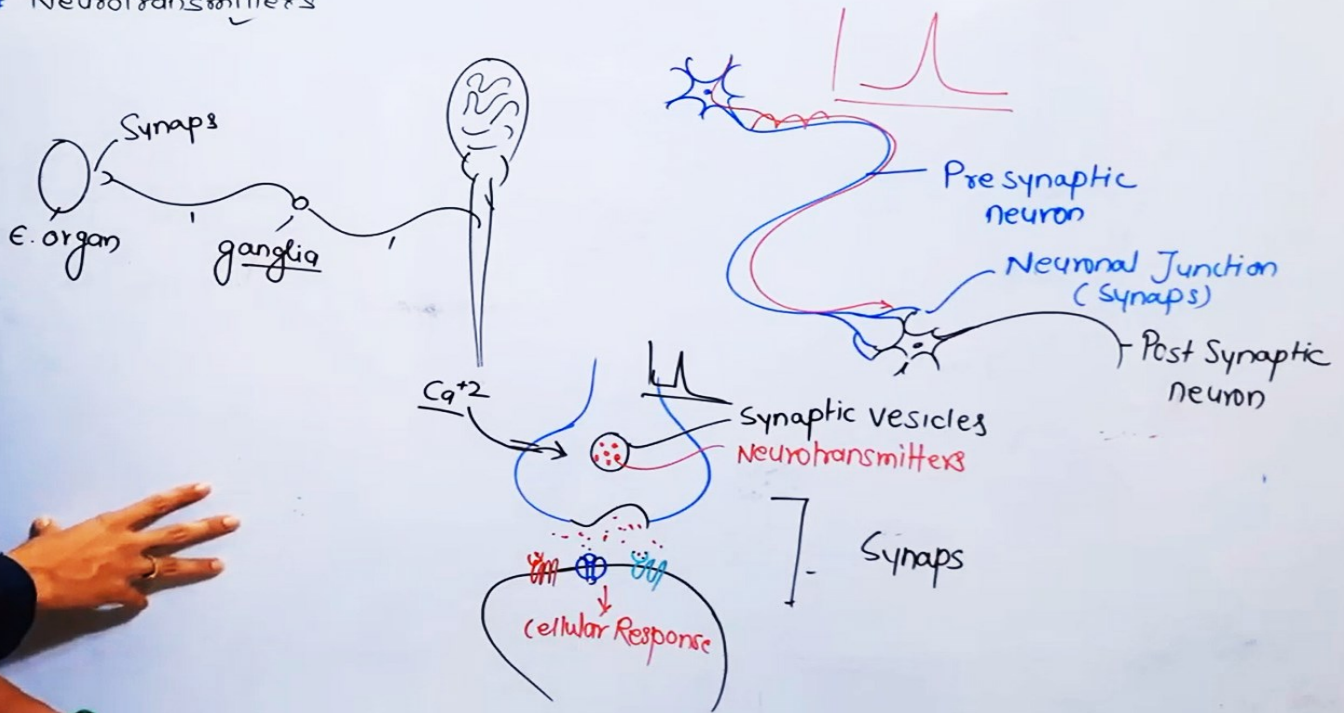 Neurotransmitters
Synaps
E. organ
ganglia
Presynaptic
neuron
Neuronal Junction
(Synaps)
Post Synaptic
neuron
Ca+2
Synaptic vesicles
Neurotransmitters
Synaps
Cellular Response